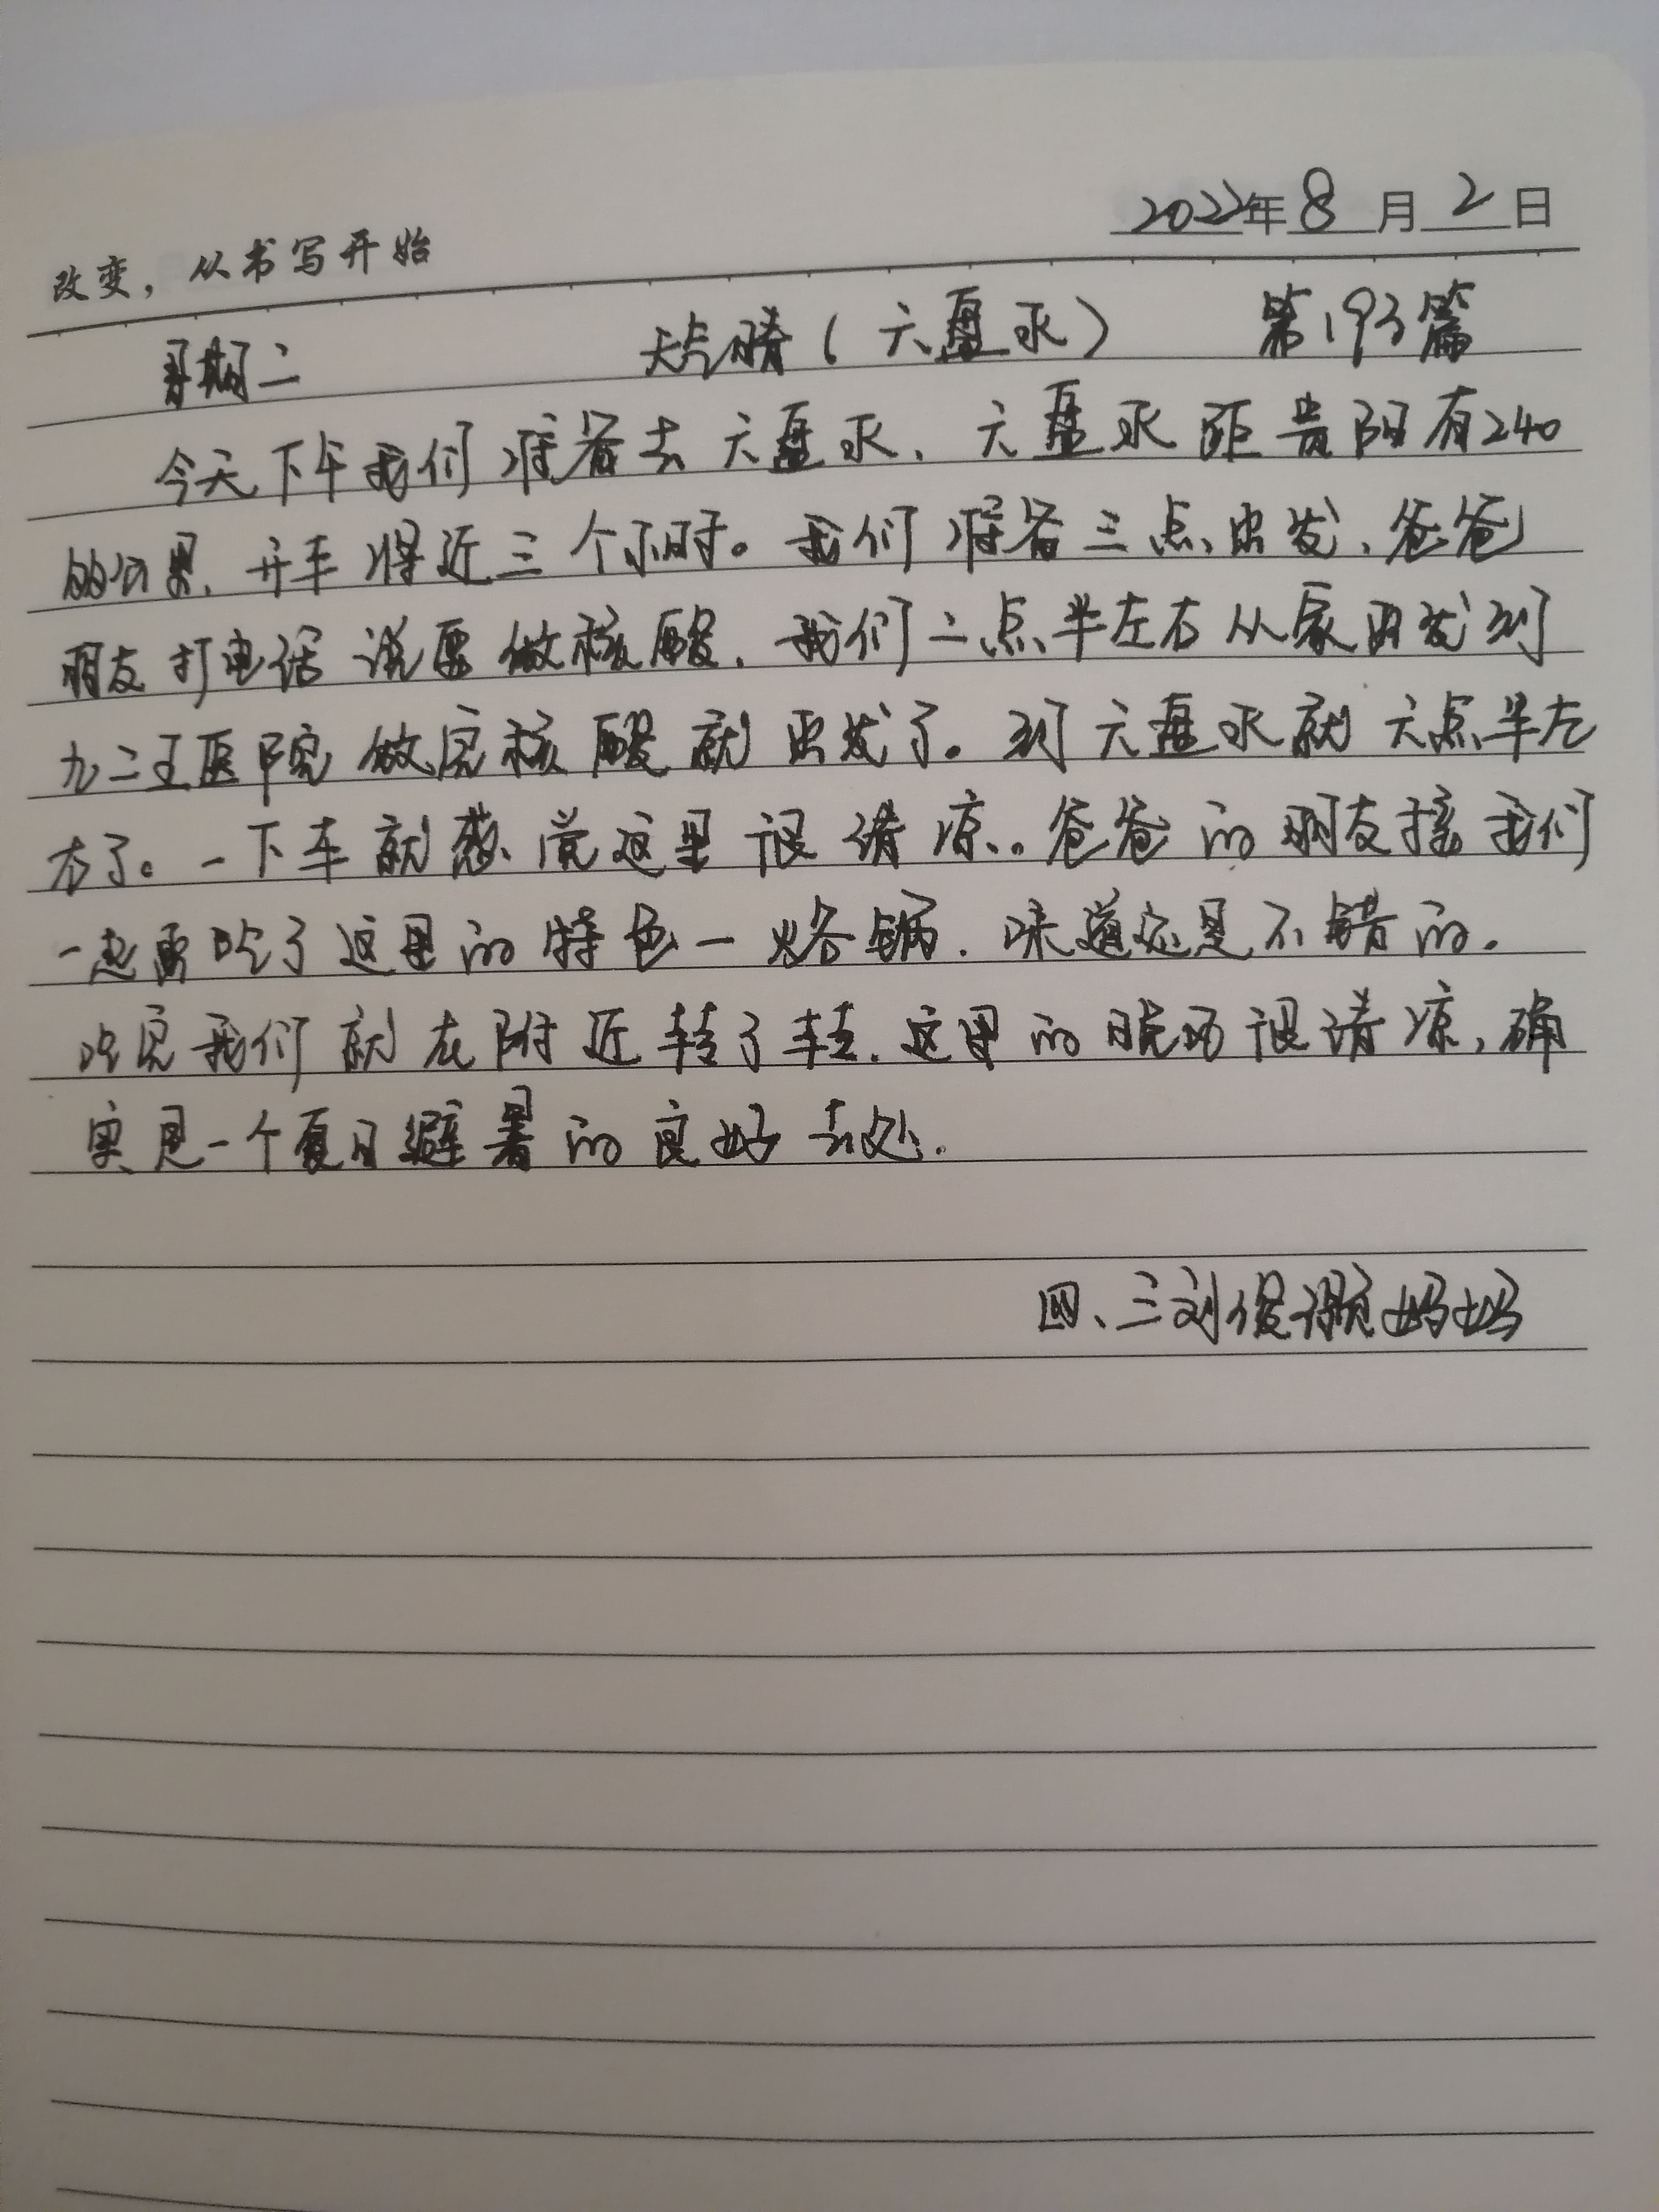 2022年8月2日
改变，从书写开始
星期二 天气晴（六盘水） 第193篇
今天下午我们准备去六盘水、六盘水距贵阳有240
的公里、开车将近三个小时。我们准备三点出发、爸爸
朋友打电话说要做核酸、我们二点半左右从家出发到
九二王医院做完核酸就出发了。到六盘水就六点半左
右了。一下车就感觉这里很清凉。爸爸的朋友接我们
一起去吃了这里的特色一烙锅、味道还是不错的.
吃完我们就在附近转了转.这里的晚场很清凉,确
实是一个夏日避暑的良好去处.
四、三刘俊妈妈